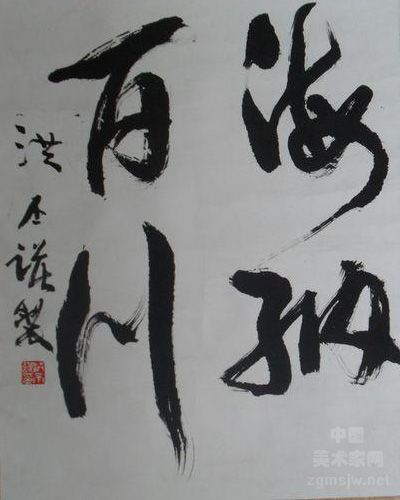 海纳
百川
洪丕谟
中国
美术家网
zgmsjw.net